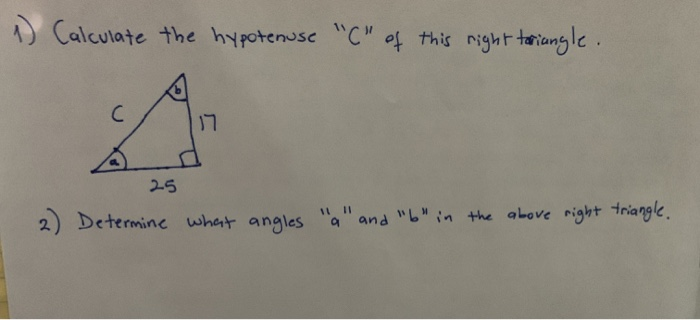 1) Calculate the hypotenuse "C" of this right triangle.
b
C
17
a
25
2) Determine what angles "a" and "b" in the above right triangle.